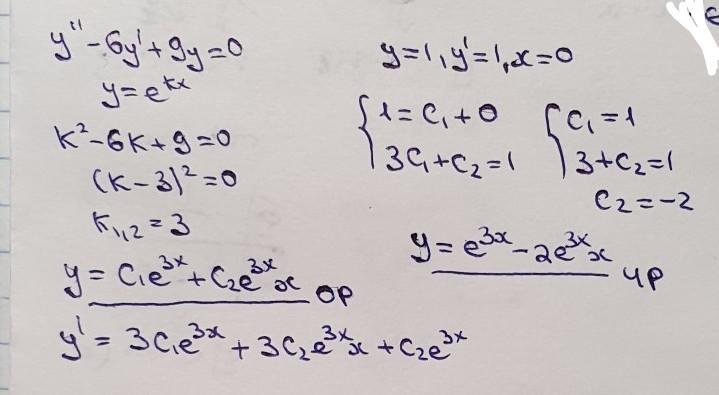 y'' - 6y' + 9y = 0
y = e^{kx}
k² - 6k + 9 = 0
(k - 3)² = 0
k_{1,2} = 3
y = C₁e^{3x} + C₂e^{3x}x ОР
y' = 3C₁e^{3x} + 3C₂e^{3x}x + C₂e^{3x}
y = 1, y' = 1, x = 0
{ 1 = C₁ + 0 { C₁ = 1
3C₁ + C₂ = 1 3 + C₂ = 1
C₂ = -2
y = e^{3x} - 2e^{3x}x ЧР